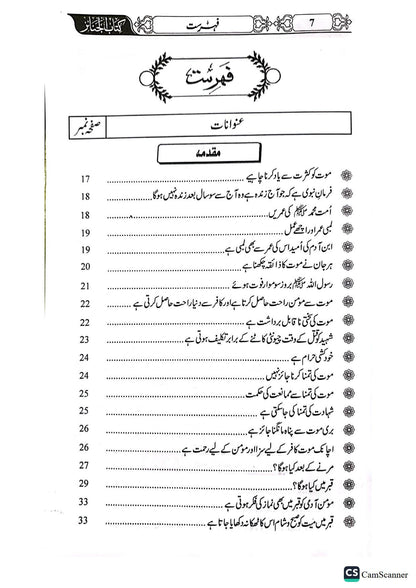 کتاب الجنائز فہرست 7
فہرست
عنوانات صفحہ نمبر
مقدمہ
موت کو کثرت سے یاد کرنا چاہیے 17
فرمانِ نبوی ہے کہ جو آج زندہ ہے وہ آج سے سو سال بعد زندہ نہیں ہوگا 18
اُمت محمد ﷺ کی عمریں 18
لمبی عمر اور اچھے عمل 19
ابن آدم کی اُمید اس کی عمر سے بھی لمبی ہے 19
ہر جان نے موت کا ذائقہ چکھنا ہے 20
رسول اللہ ﷺ بروز سوموار فوت ہوئے 21
موت سے مؤمن راحت حاصل کرتا ہے اور کافر سے دنیا راحت حاصل کرتی ہے 22
موت کی سختی ناقابل برداشت ہے 22
شہید کو قتل کے وقت چیونٹی کاٹنے کے برابر تکلیف ہوتی ہے 23
خودکشی حرام ہے 24
موت کی تمنا کرنا جائز نہیں 24
موت کی تمنا سے ممانعت کی حکمت 25
شہادت کی تمنا کی جاسکتی ہے 25
بری موت سے پناہ مانگنا جائز ہے 26
اچانک موت کافر کے لیے سزا اور مؤمن کے لیے رحمت ہے 26
مرنے کے بعد کیا ہوگا؟ 27
قبر میں کیا ہوگا؟ 27
مؤمن آدمی کو قبر میں بھی نماز کی فکر ہوتی ہے 33
قبر میں میت کو صبح و شام اس کا ٹھکانہ دکھایا جاتا ہے 33
CS CamScanner